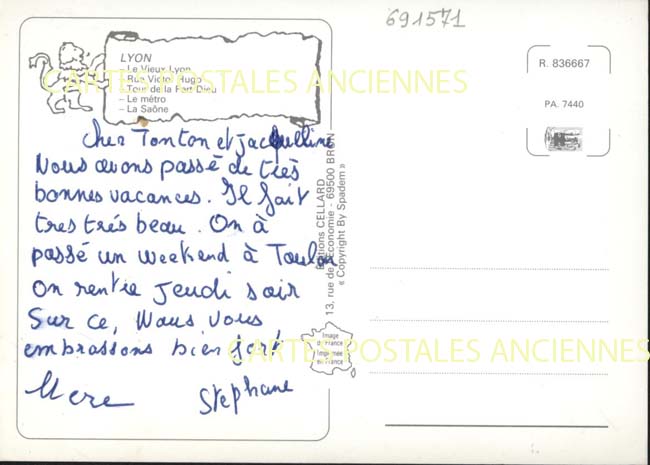 691571
LYON
- Le Vieux Lyon
- Rue Victor Hugo
- Tour de la Part-Dieu
- Le métro
- La Saône
CARTES POSTALES ANCIENNES
R. 836667
PA. 7440
Cher Tonton et Jacqueline
Nous avons passé de très
bonnes vacances. Il fait
tres trés beau. On à
passé un weekend à Toulon
On rentre Jeudi soir
Sur ce, Nous vous
embrassons bien fort
Stephane
Editions CELLARD
13, rue de l'Économie - 69500 BRON
« Copyright By Spadem »
Image
de France
Imprimée
en France
CARTES POSTALES ANCIENNES